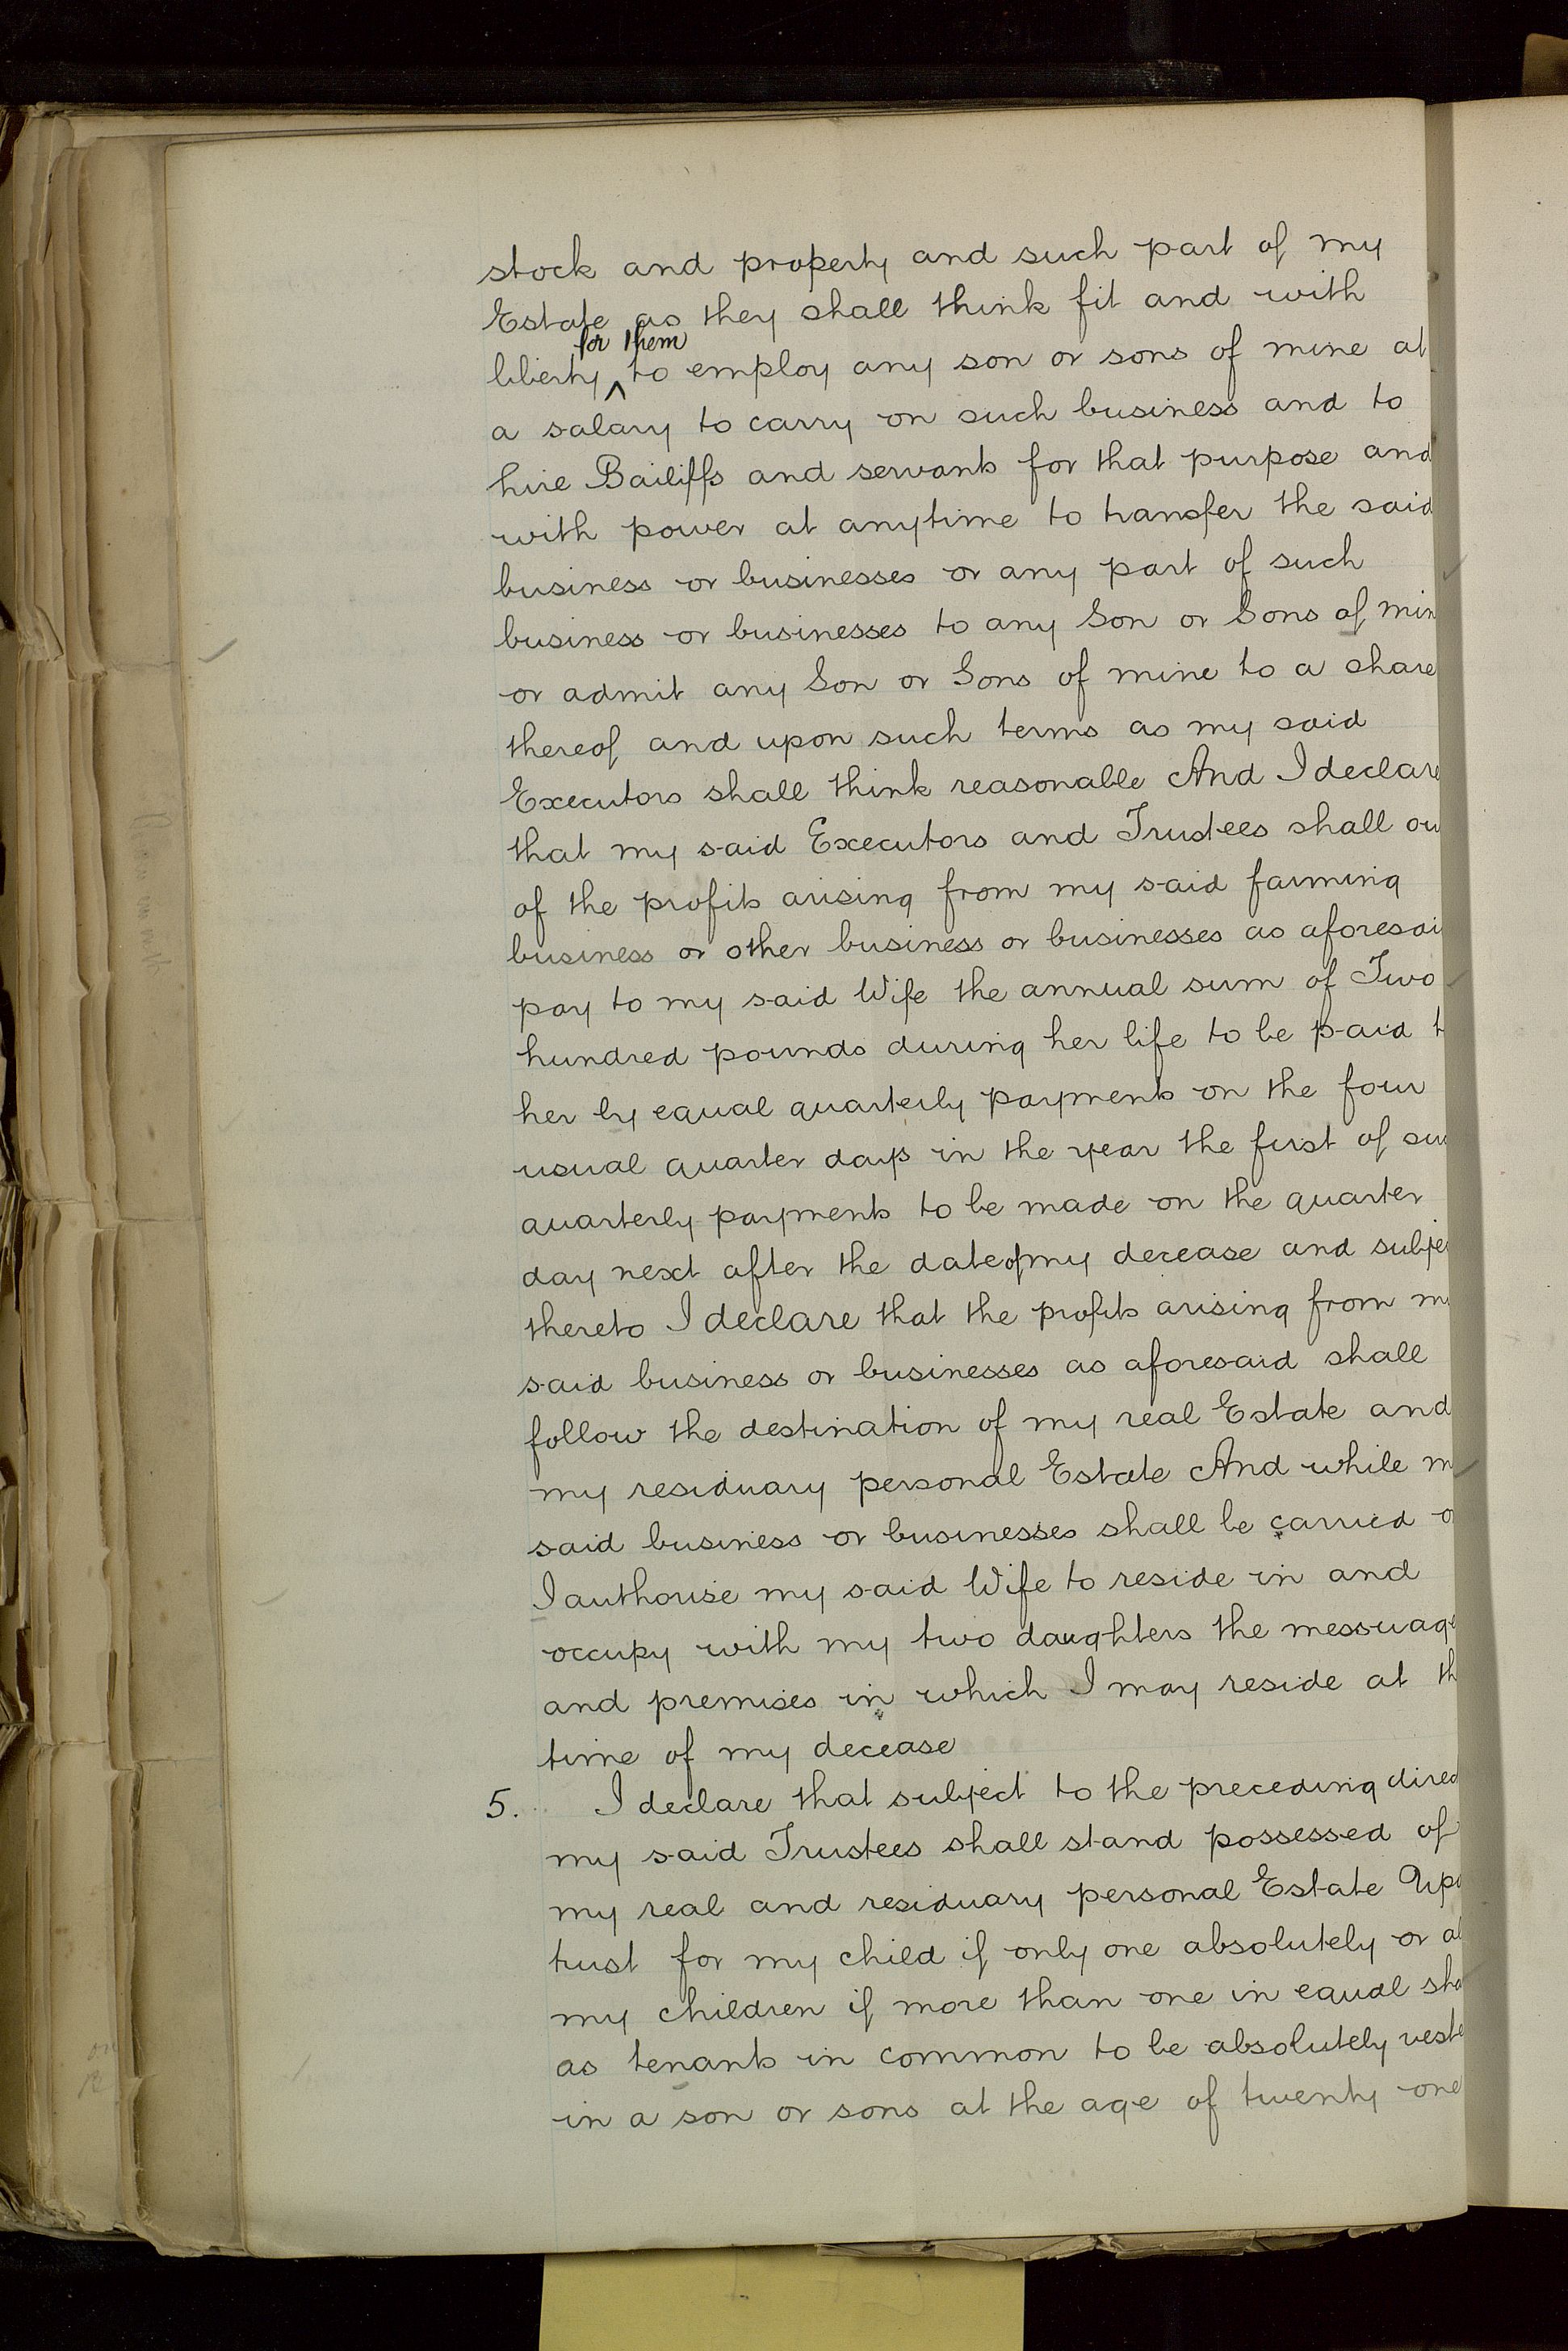 stock and property and such part of my
Estate as they shall think fit and with
for them
liberty ^ to employ any son or sons of mine at
a salary to carry on such business and to
hire Bailiffs and servants for that purpose and
with power at anytime to transfer the said
business or businesses or any part of such
business or businesses to any Son or Sons of min
or admit any Son or Sons of mine to a share
thereof and upon such terms as my said
Executors shall think reasonable And I declare
that my said Executors and Trustees shall ou
of the profits arising from my said farming
business or other business or businesses as aforesai
pay to my said Wife the annual sum of Two
hundred pounds during her life to be paid t
her by equal quarterly payments on the four
usual quarter days in the year the first of su
quarterly payments to be made on the quarter
day next after the date of my decease and subje
thereto I declare that the profits arising from m
said business or businesses as aforesaid shall
follow the destination of my real Estate and
my residuary personal Estate And while m
said business or businesses shall be carried o
I authorise my said Wife to reside in and
occupy with my two daughters the messuage
and premises in which I may reside at th
time of my decease
5. I declare that subject to the preceding direc
my said Trustees shall stand possessed of
my real and residuary personal Estate Upo
trust for my child if only one absolutely or al
my children if more than one in equal sha
as tenants in common to be absolutely veste
in a son or sons at the age of twenty one